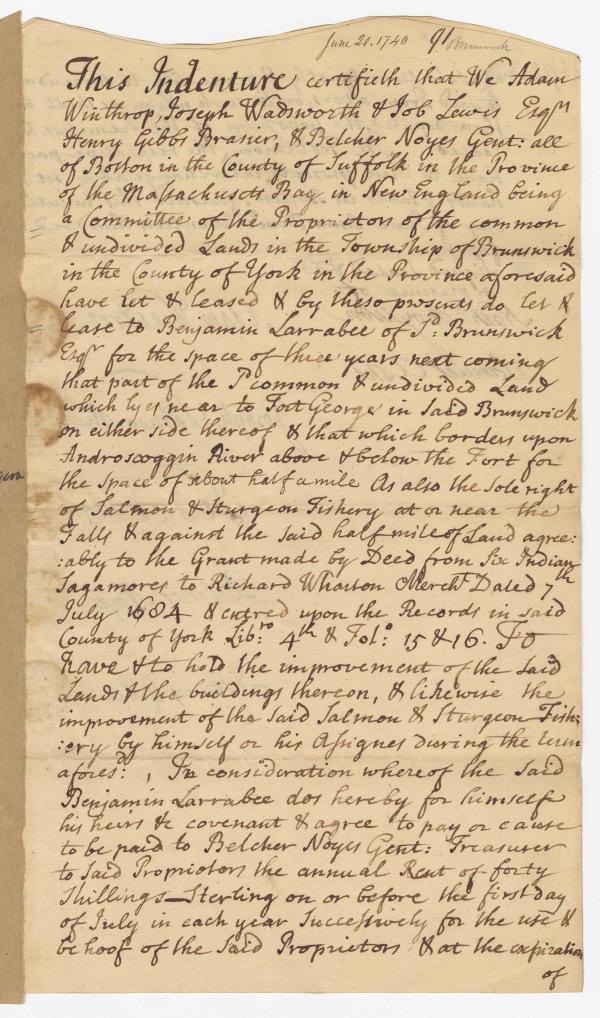 June 20. 1740 91 Brunswick
This Indenture certifieth that We Adam
Winthrop, Joseph Wadsworth & Job Lewis Esqrs
Henry Gibbs Brasier, & Belcher Noyes Gent: all
of Boston in the County of Suffolk in the Province
of the Massachusets Bay in New England being
a Committee of the Proprietors of the common
& undivided Lands in the Township of Brunswick
in the County of York in the Province aforesaid
have let & leased & by these presents do let &
lease to Benjamin Larrabee of Sd: Brunswick
Esqr for the space of three years next coming
that part of the Sd common & undivided Land
which lyes near to Fort George in said Brunswick
on either side thereof & that which borders upon
Androscoggin River above & below the Fort for
the space of about half a mile As also the sole right
of Salmon & Sturgeon Fishery at or near the
Falls & against the said half mile of Land agree:
:ably to the Grant made by Deed from Six Indian
Sagamores to Richard Wharton Mercht Dated 7th
July 1684 & entred upon the Records in said
County of York Libro: 4th & Folo: 15 & 16. To
have & to hold the improvement of the said
Lands & the buildings thereon, & likewise the
improvement of the said Salmon & Sturgeon Fish:
:ery by himself or his Assignes during the term
aforesd: , In consideration whereof the said
Benjamin Larrabee dos hereby for himself
his heirs &c covenant & agree to pay or cause
to be paid to Belcher Noyes Gent: Treasurer
to said Proprietors the annual Rent of forty
Shillings Sterling on or before the first day
of July in each year Successively for the use &
behoof of the said Proprietors & at the expiration
of